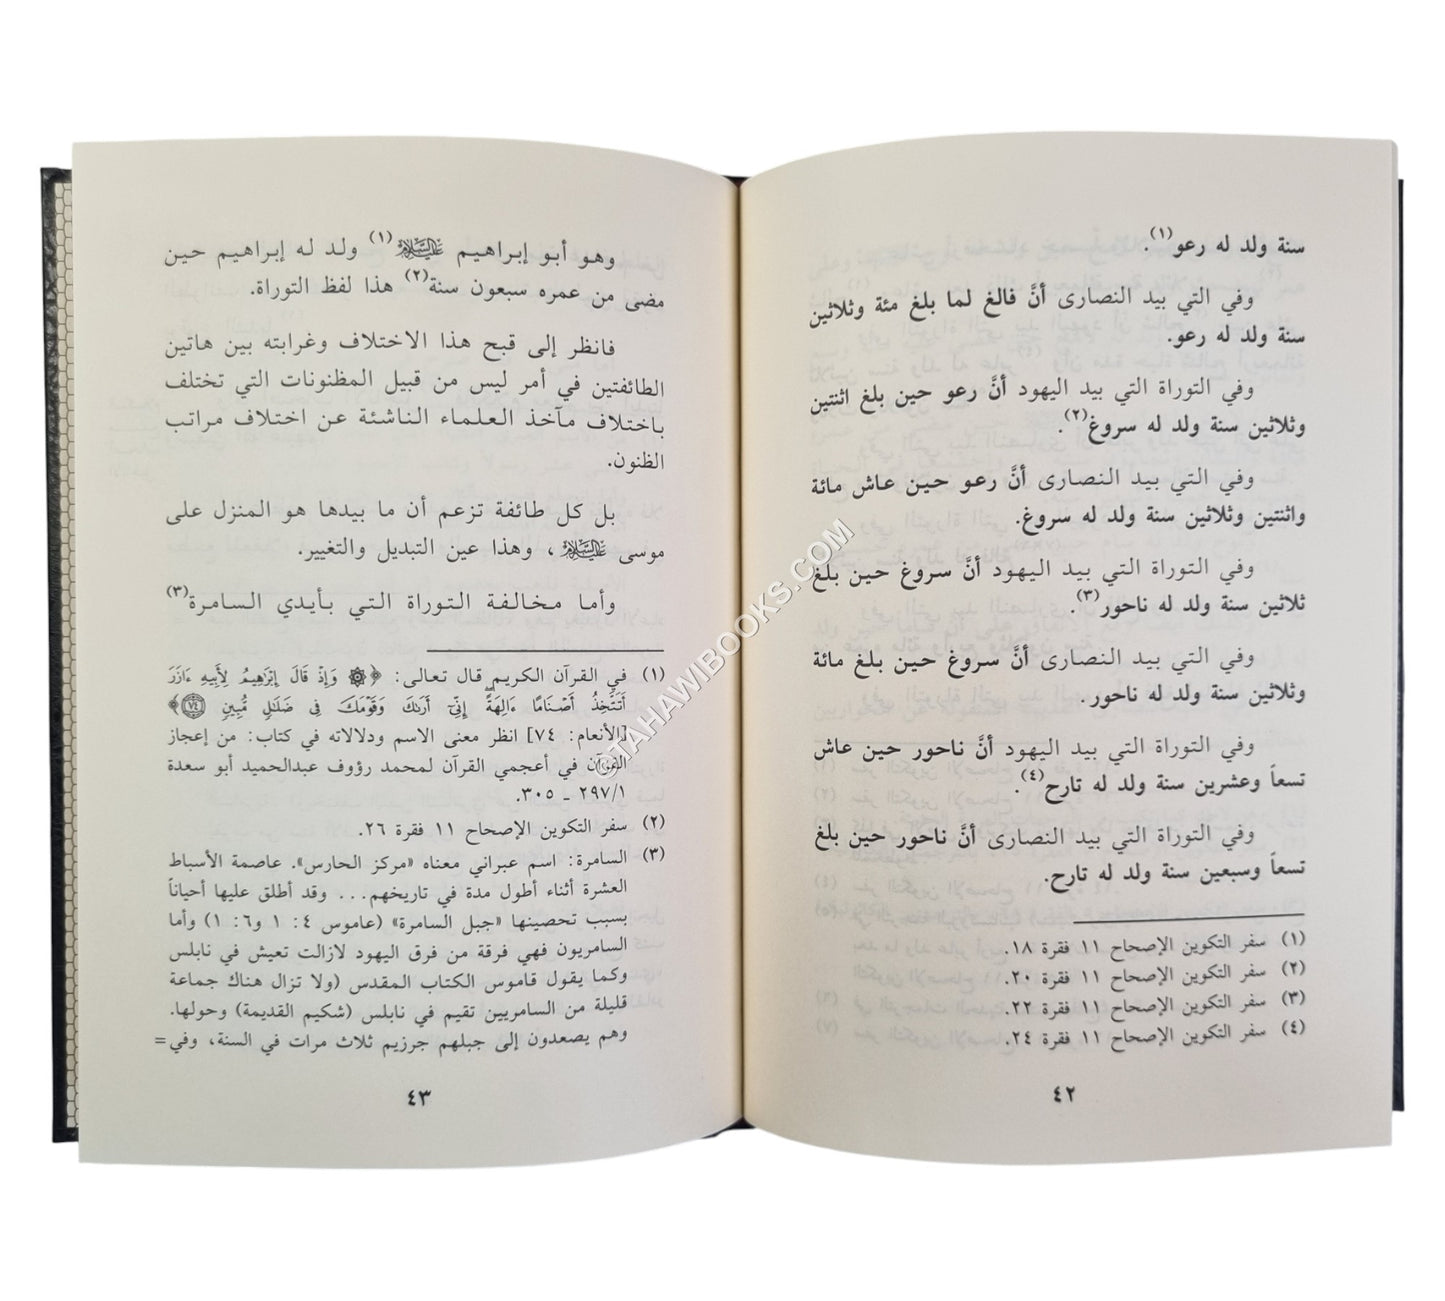 سنة ولد له رعو(١).
وفي التي بيد النصارى أنَّ فالغ لما بلغ مئة وثلاثين
سنة ولد له رعو.
وفي التوراة التي بيد اليهود أنَّ رعو حين بلغ اثنتين
وثلاثين سنة ولد له سروغ(٢).
وفي التي بيد النصارى أنَّ رعو حين عاش مائة
واثنتين وثلاثين سنة ولد له سروغ.
وفي التوراة التي بيد اليهود أنَّ سروغ حين بلغ
ثلاثين سنة ولد له ناحور(٣).
وفي التي بيد النصارى أنَّ سروغ حين بلغ مائة
وثلاثين سنة ولد له ناحور.
وفي التوراة التي بيد اليهود أنَّ ناحور حين عاش
تسعاً وعشرين سنة ولد له تارح(٤).
وفي التوراة التي بيد النصارى أنَّ ناحور حين بلغ
تسعاً وسبعين سنة ولد له تارح.
(١) سفر التكوين الإصحاح ١١ فقرة ١٨.
(٢) سفر التكوين الإصحاح ١١ فقرة ٢٠.
(٣) سفر التكوين الإصحاح ١١ فقرة ٢٢.
(٤) سفر التكوين الإصحاح ١١ فقرة ٢٤.
٤٢
وهو أبو إبراهيم عليه السلام(١) ولد له إبراهيم حين
مضى من عمره سبعون سنة(٢) هذا لفظ التوراة.
فانظر إلى قبح هذا الاختلاف وغرابته بين هاتين
الطائفتين في أمر ليس من قبيل المظنونات التي تختلف
باختلاف مآخذ العلماء الناشئة عن اختلاف مراتب
الظنون.
بل كل طائفة تزعم أن ما بيدها هو المنزل على
موسى عليه السلام، وهذا عين التبديل والتغيير.
وأما مخالفة التوراة التي بأيدي السامرة(٣)
(١) في القرآن الكريم قال تعالى: ﴿۞ وَإِذْ قَالَ إِبْرَٰهِيمُ لِأَبِيهِ ءَازَرَ
أَتَتَّخِذُ أَصْنَامًا ءَالِهَةً ۖ إِنِّىٓ أَرَىٰكَ وَقَوْمَكَ فِى ضَلَٰلٍ مُّبِينٍ ٧٤﴾
[الأنعام: ٧٤] انظر معنى الاسم ودلالاته في كتاب: من إعجاز
القرآن في أعجمي القرآن لمحمد رؤوف عبدالحميد أبو سعدة
٢٩٧/١ ـ ٣٠٥.
(٢) سفر التكوين الإصحاح ١١ فقرة ٢٦.
(٣) السامرة: اسم عبراني معناه «مركز الحارس». عاصمة الأسباط
العشرة أثناء أطول مدة في تاريخهم... وقد أطلق عليها أحياناً
بسبب تحصينها «جبل السامرة» (عاموس ٤: ١ و٦: ١) وأما
السامريون فهي فرقة من فرق اليهود لازالت تعيش في نابلس
وكما يقول قاموس الكتاب المقدس (ولا تزال هناك جماعة
قليلة من السامريين تقيم في نابلس (شكيم القديمة) وحولها.
وهم يصعدون إلى جبلهم جرزيم ثلاث مرات في السنة، وفي=
٤٣
©TAHAWIBOOKS.COM